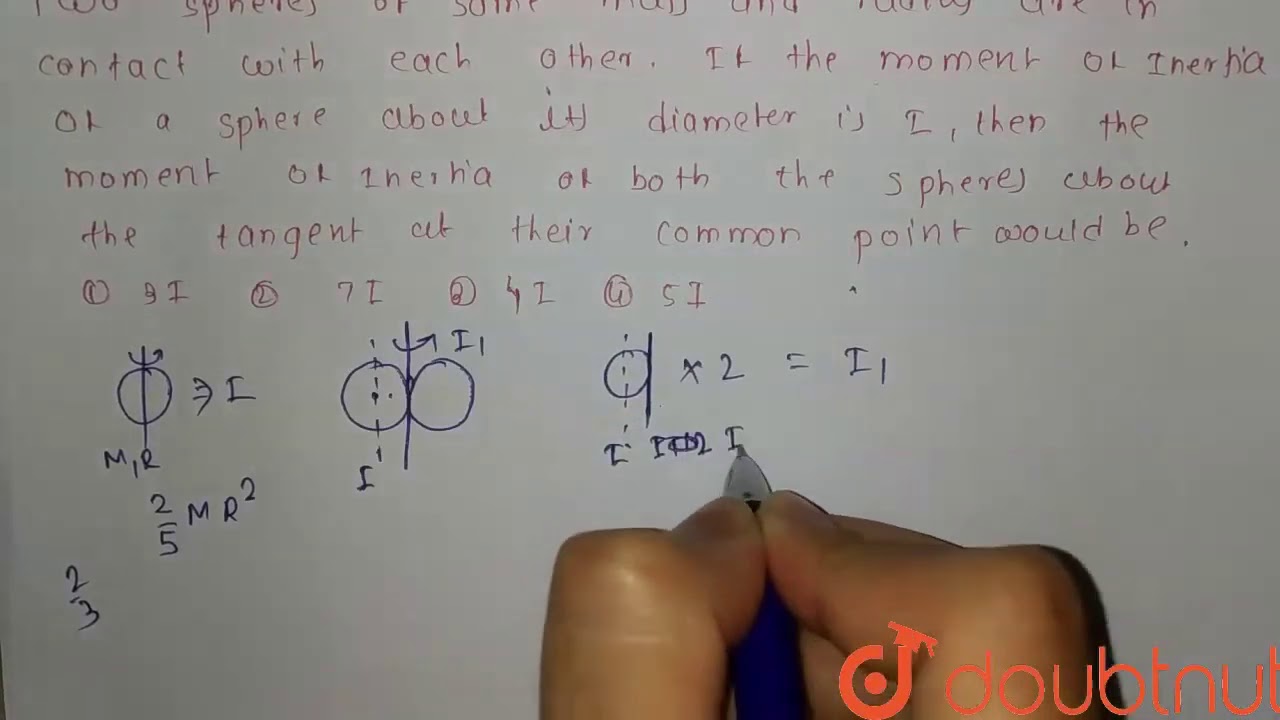 Two spheres of same mass and radius are in
contact with each other. If the moment of Inertia
of a sphere about its diameter is I, then the
moment of Inertia of both the spheres about
the tangent at their common point would be.
① 3I ② 7I ③ 4I ④ 5I
I₁
× 2 = I₁
⇒ I
M,R
I
I
2 I
2/5 MR²
2/3
doubtnut